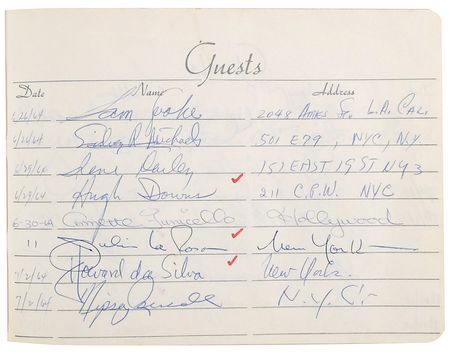 Guests
Date Name Address
6/26/64 Sam Cooke 2048 Ames St. L.A. Cal.
6/26/64 Sidney R Michaels 501 E79, NYC, N.Y.
6/29/64 Rene 151 EAST 19 ST NY 3
6/29/64 Hugh Downs 211 C.P.W. NYC
6-30-64 Annette Funicello Hollywood
11 Julius La Rosa New York
7/2/64 Howard da Silva New York.
7/2/64 Nipsey Russell N.Y.C.